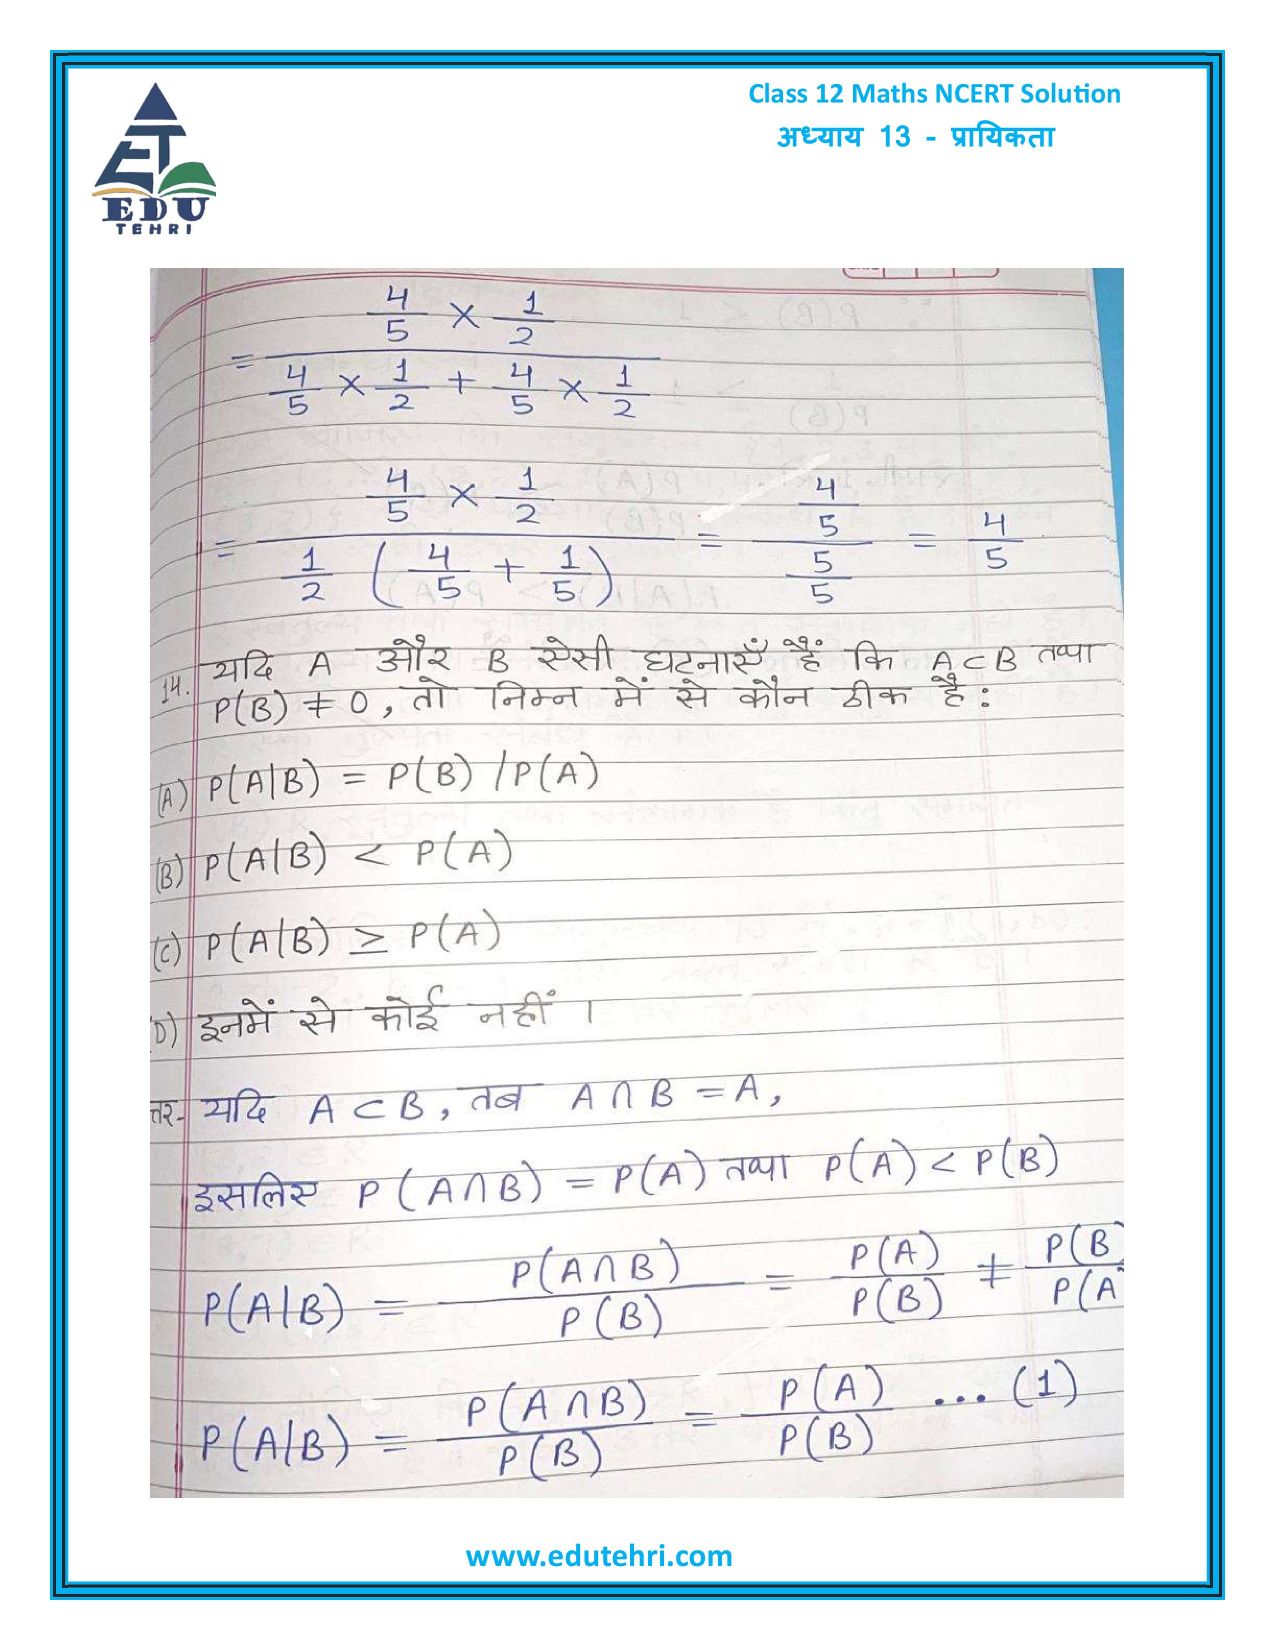 Class 12 Maths NCERT Solution
अध्याय 13 - प्रायिकता
EDU
TEHRI
= (4/5 × 1/2) / (4/5 × 1/2 + 4/5 × 1/2)
= (4/5 × 1/2) / (1/2 (4/5 + 1/5)) = (4/5) / (5/5) = 4/5
14. यदि A और B ऐसी घटनाएँ हैं कि A ⊂ B तथा
P(B) ≠ 0, तो निम्न में से कौन ठीक है:
(A) P(A|B) = P(B) / P(A)
(B) P(A|B) < P(A)
(C) P(A|B) ≥ P(A)
D) इनमें से कोई नहीं ।
त्तर- यदि A ⊂ B, तब A ∩ B = A,
इसलिए P(A∩B) = P(A) तथा P(A) < P(B)
P(A|B) = P(A∩B) / P(B) = P(A) / P(B) ≠ P(B) / P(A
P(A|B) = P(A∩B) / P(B) = P(A) / P(B) ... (1)
www.edutehri.com